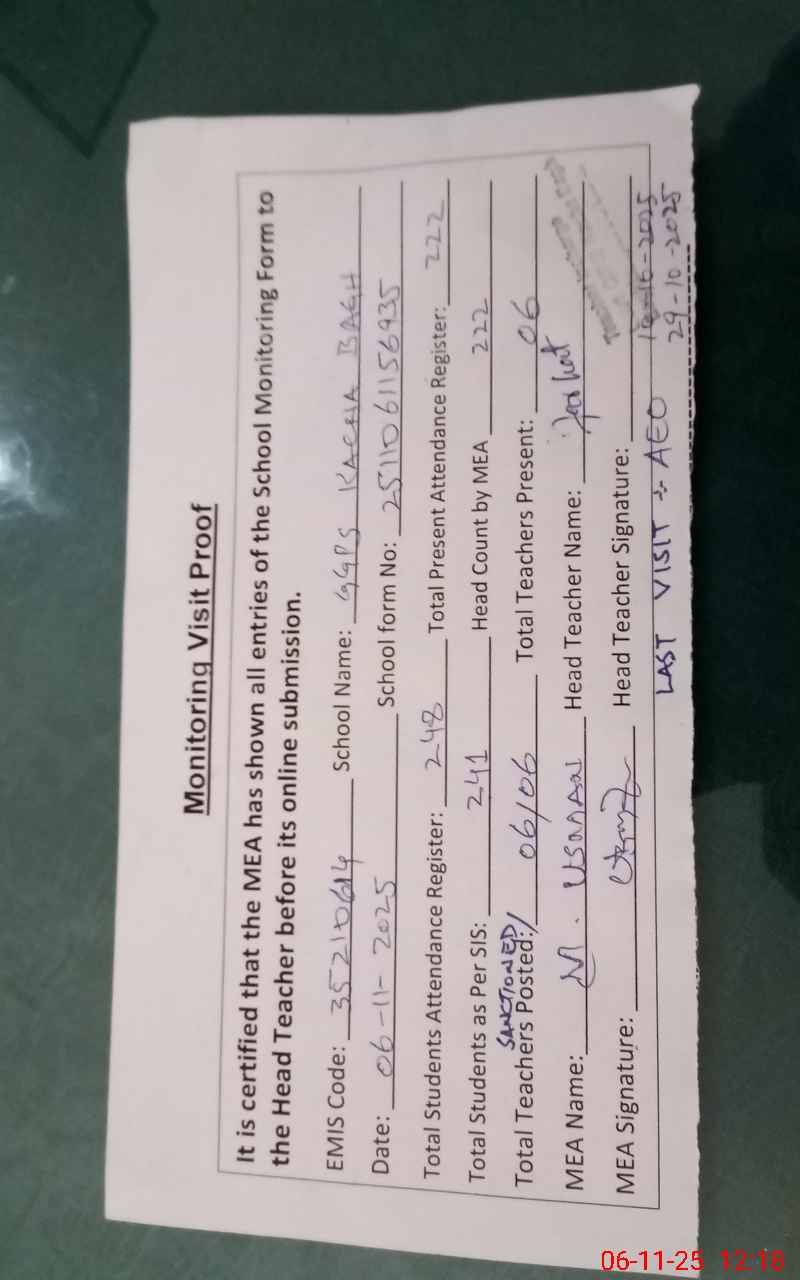 Monitoring Visit Proof
It is certified that the MEA has shown all entries of the School Monitoring Form to
the Head Teacher before its online submission.
EMIS Code: 35210614 School Name: GGPS KACHA BAGH
Date: 06-11-2025 School form No: 2511061156935
Total Students Attendance Register: 248 Total Present Attendance Register: 222
Total Students as Per SIS: 241 Head Count by MEA 222
SANCTIONED/
Total Teachers Posted: 06/06 Total Teachers Present: 06
MEA Name: M. USMAN Head Teacher Name:
MEA Signature: Head Teacher Signature:
LAST VISIT :- AEO 29-10-2025
06-11-25 12:18